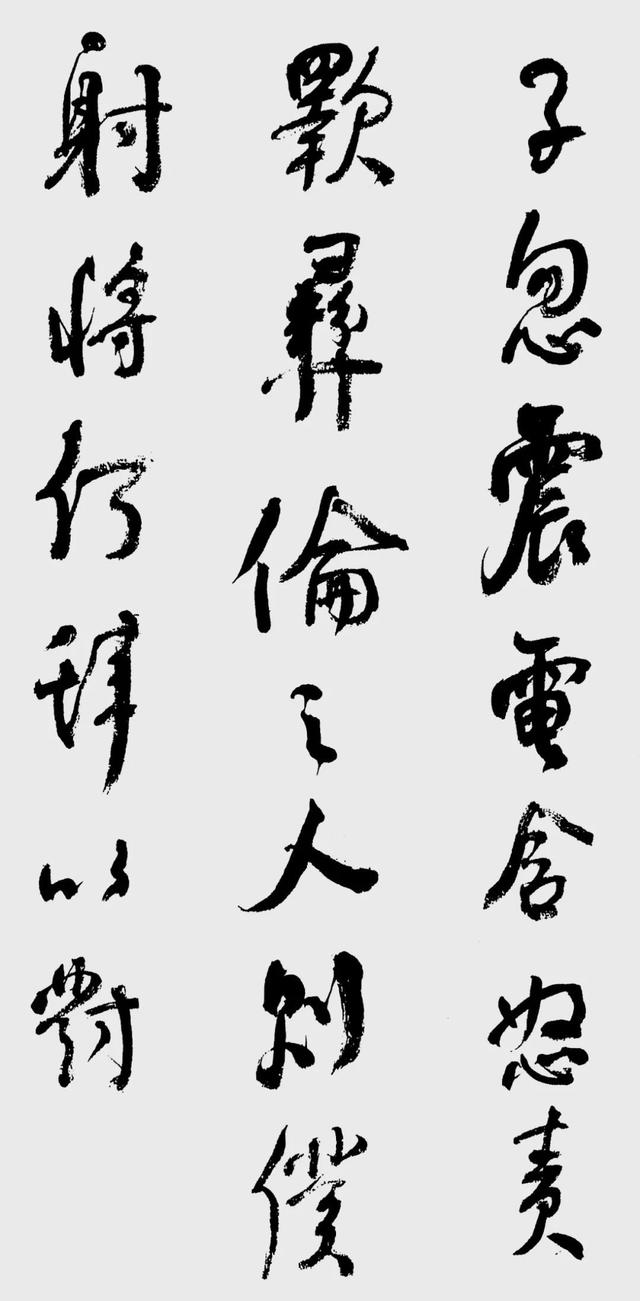 子忽震電含怒責
斁彝倫之人則僕
射將何辭以對